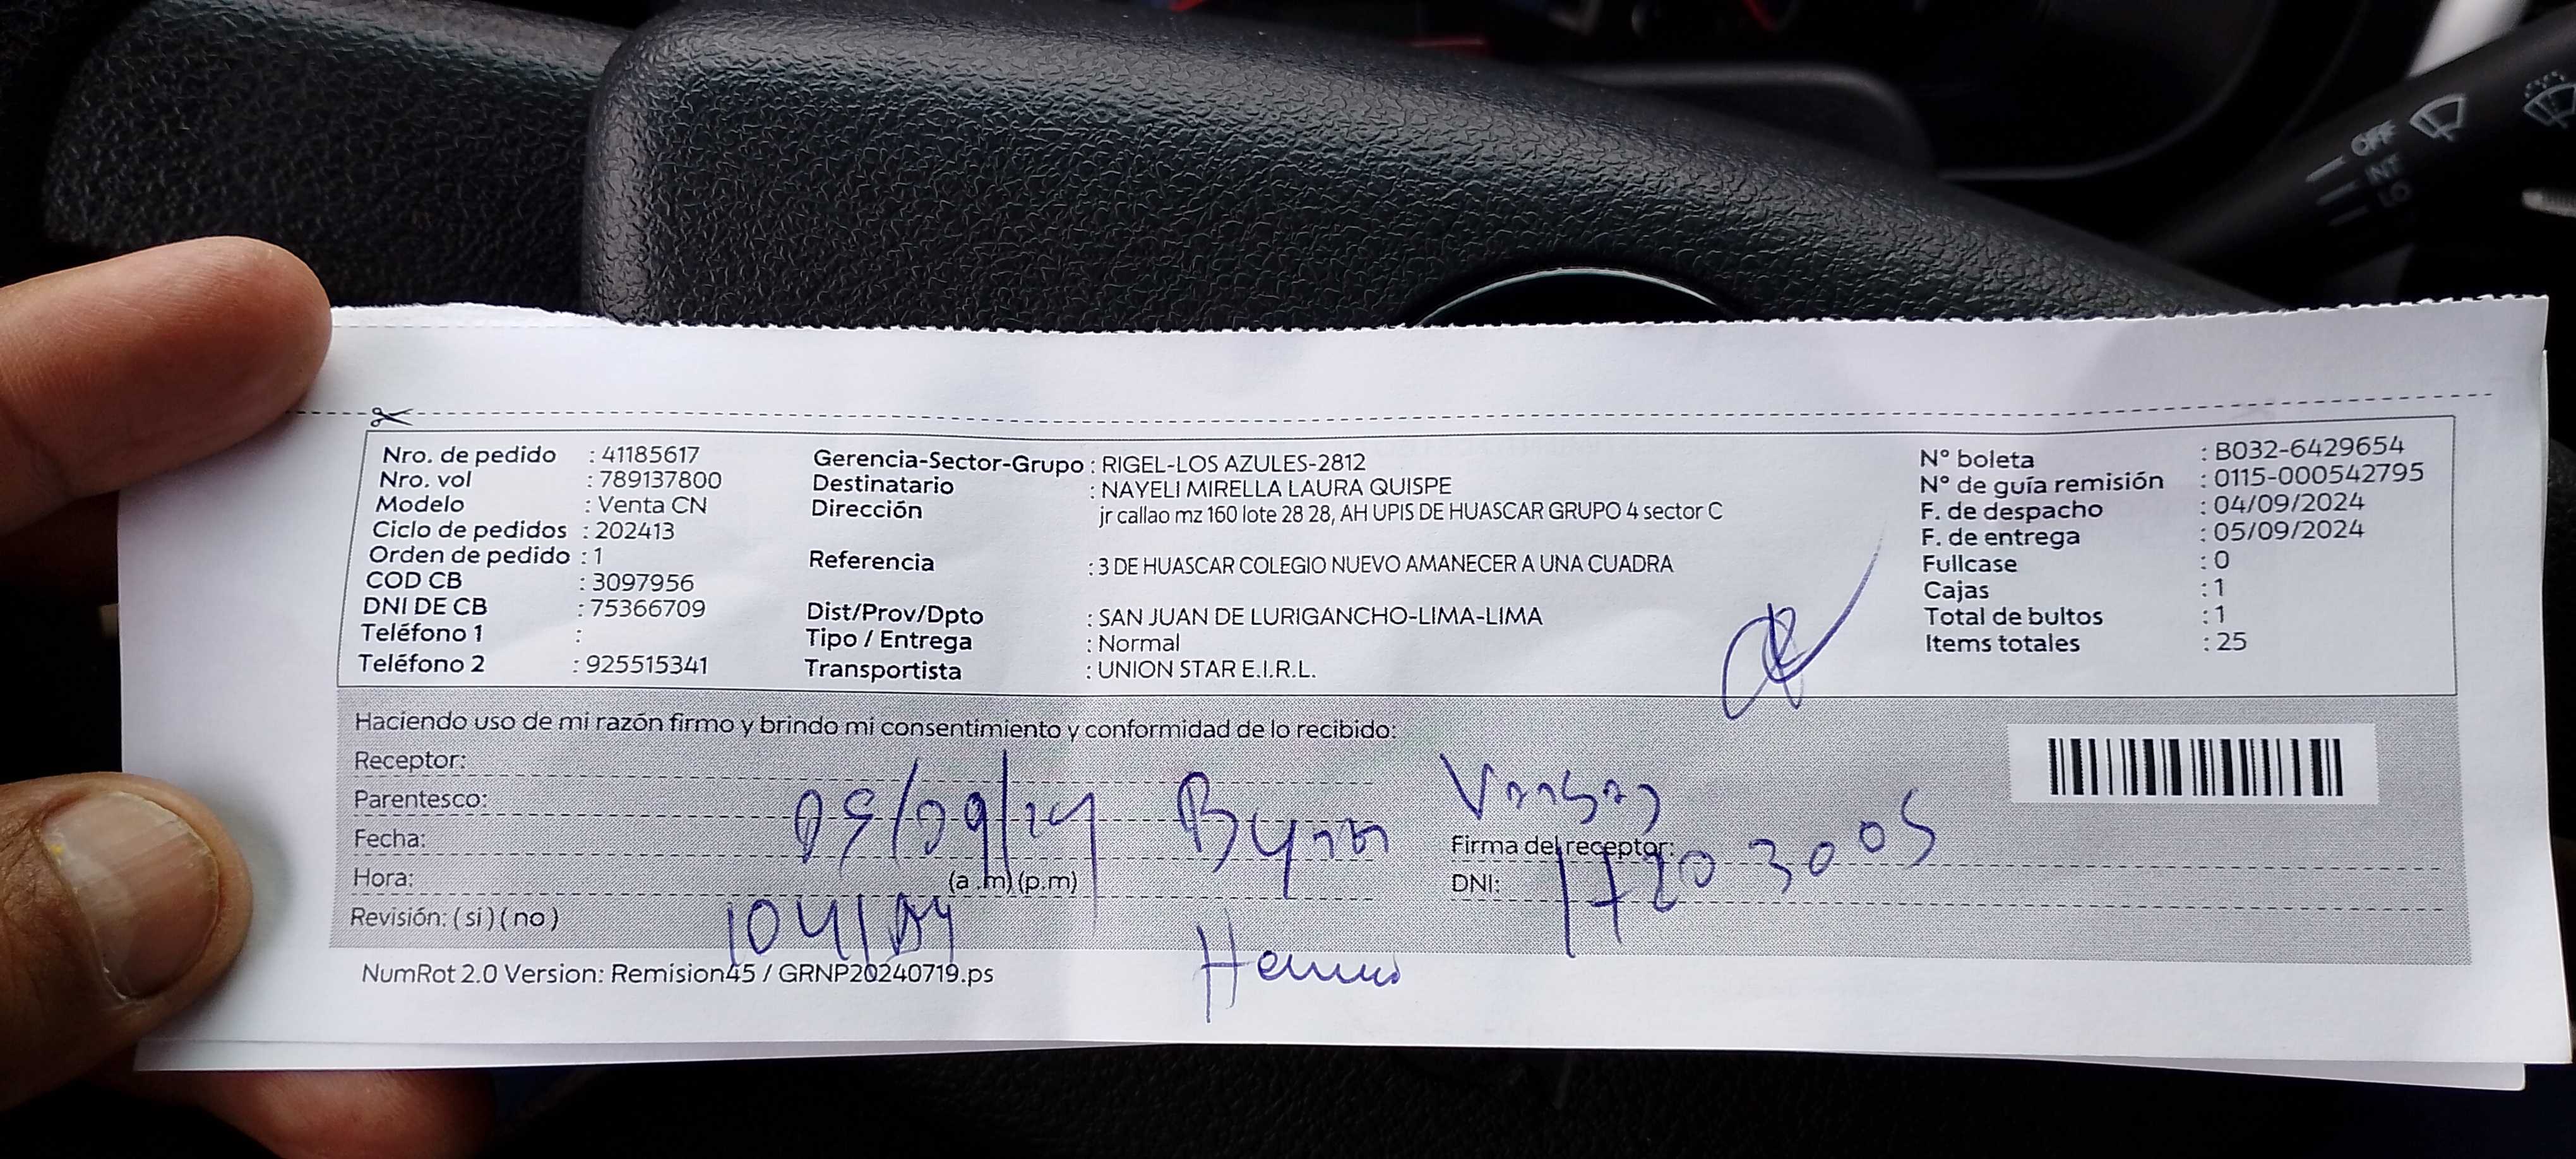 Nro. de pedido : 41185617
Nro. vol : 789137800
Modelo : Venta CN
Ciclo de pedidos : 202413
Orden de pedido : 1
COD CB : 3097956
DNI DE CB : 75366709
Teléfono 1 :
Teléfono 2 : 925515341
Gerencia-Sector-Grupo : RIGEL-LOS AZULES-2812
Destinatario : NAYELI MIRELLA LAURA QUISPE
Dirección jr callao mz 160 lote 28 28, AH UPIS DE HUASCAR GRUPO 4 sector C
Referencia : 3 DE HUASCAR COLEGIO NUEVO AMANECER A UNA CUADRA
Dist/Prov/Dpto : SAN JUAN DE LURIGANCHO-LIMA-LIMA
Tipo / Entrega : Normal
Transportista : UNION STAR E.I.R.L.
N° boleta : B032-6429654
N° de guía remisión : 0115-000542795
F. de despacho : 04/09/2024
F. de entrega : 05/09/2024
Fullcase : 0
Cajas : 1
Total de bultos : 1
Items totales : 25
Haciendo uso de mi razón firmo y brindo mi consentimiento y conformidad de lo recibido:
Receptor:
Parentesco:
Fecha: 05/09/24 Byron
Hora: (a .m) (p.m)
Revisión: ( si ) ( no )
Firma del receptor:
DNI:
NumRot 2.0 Version: Remision45 / GRNP20240719.ps
OFF
INT
LO